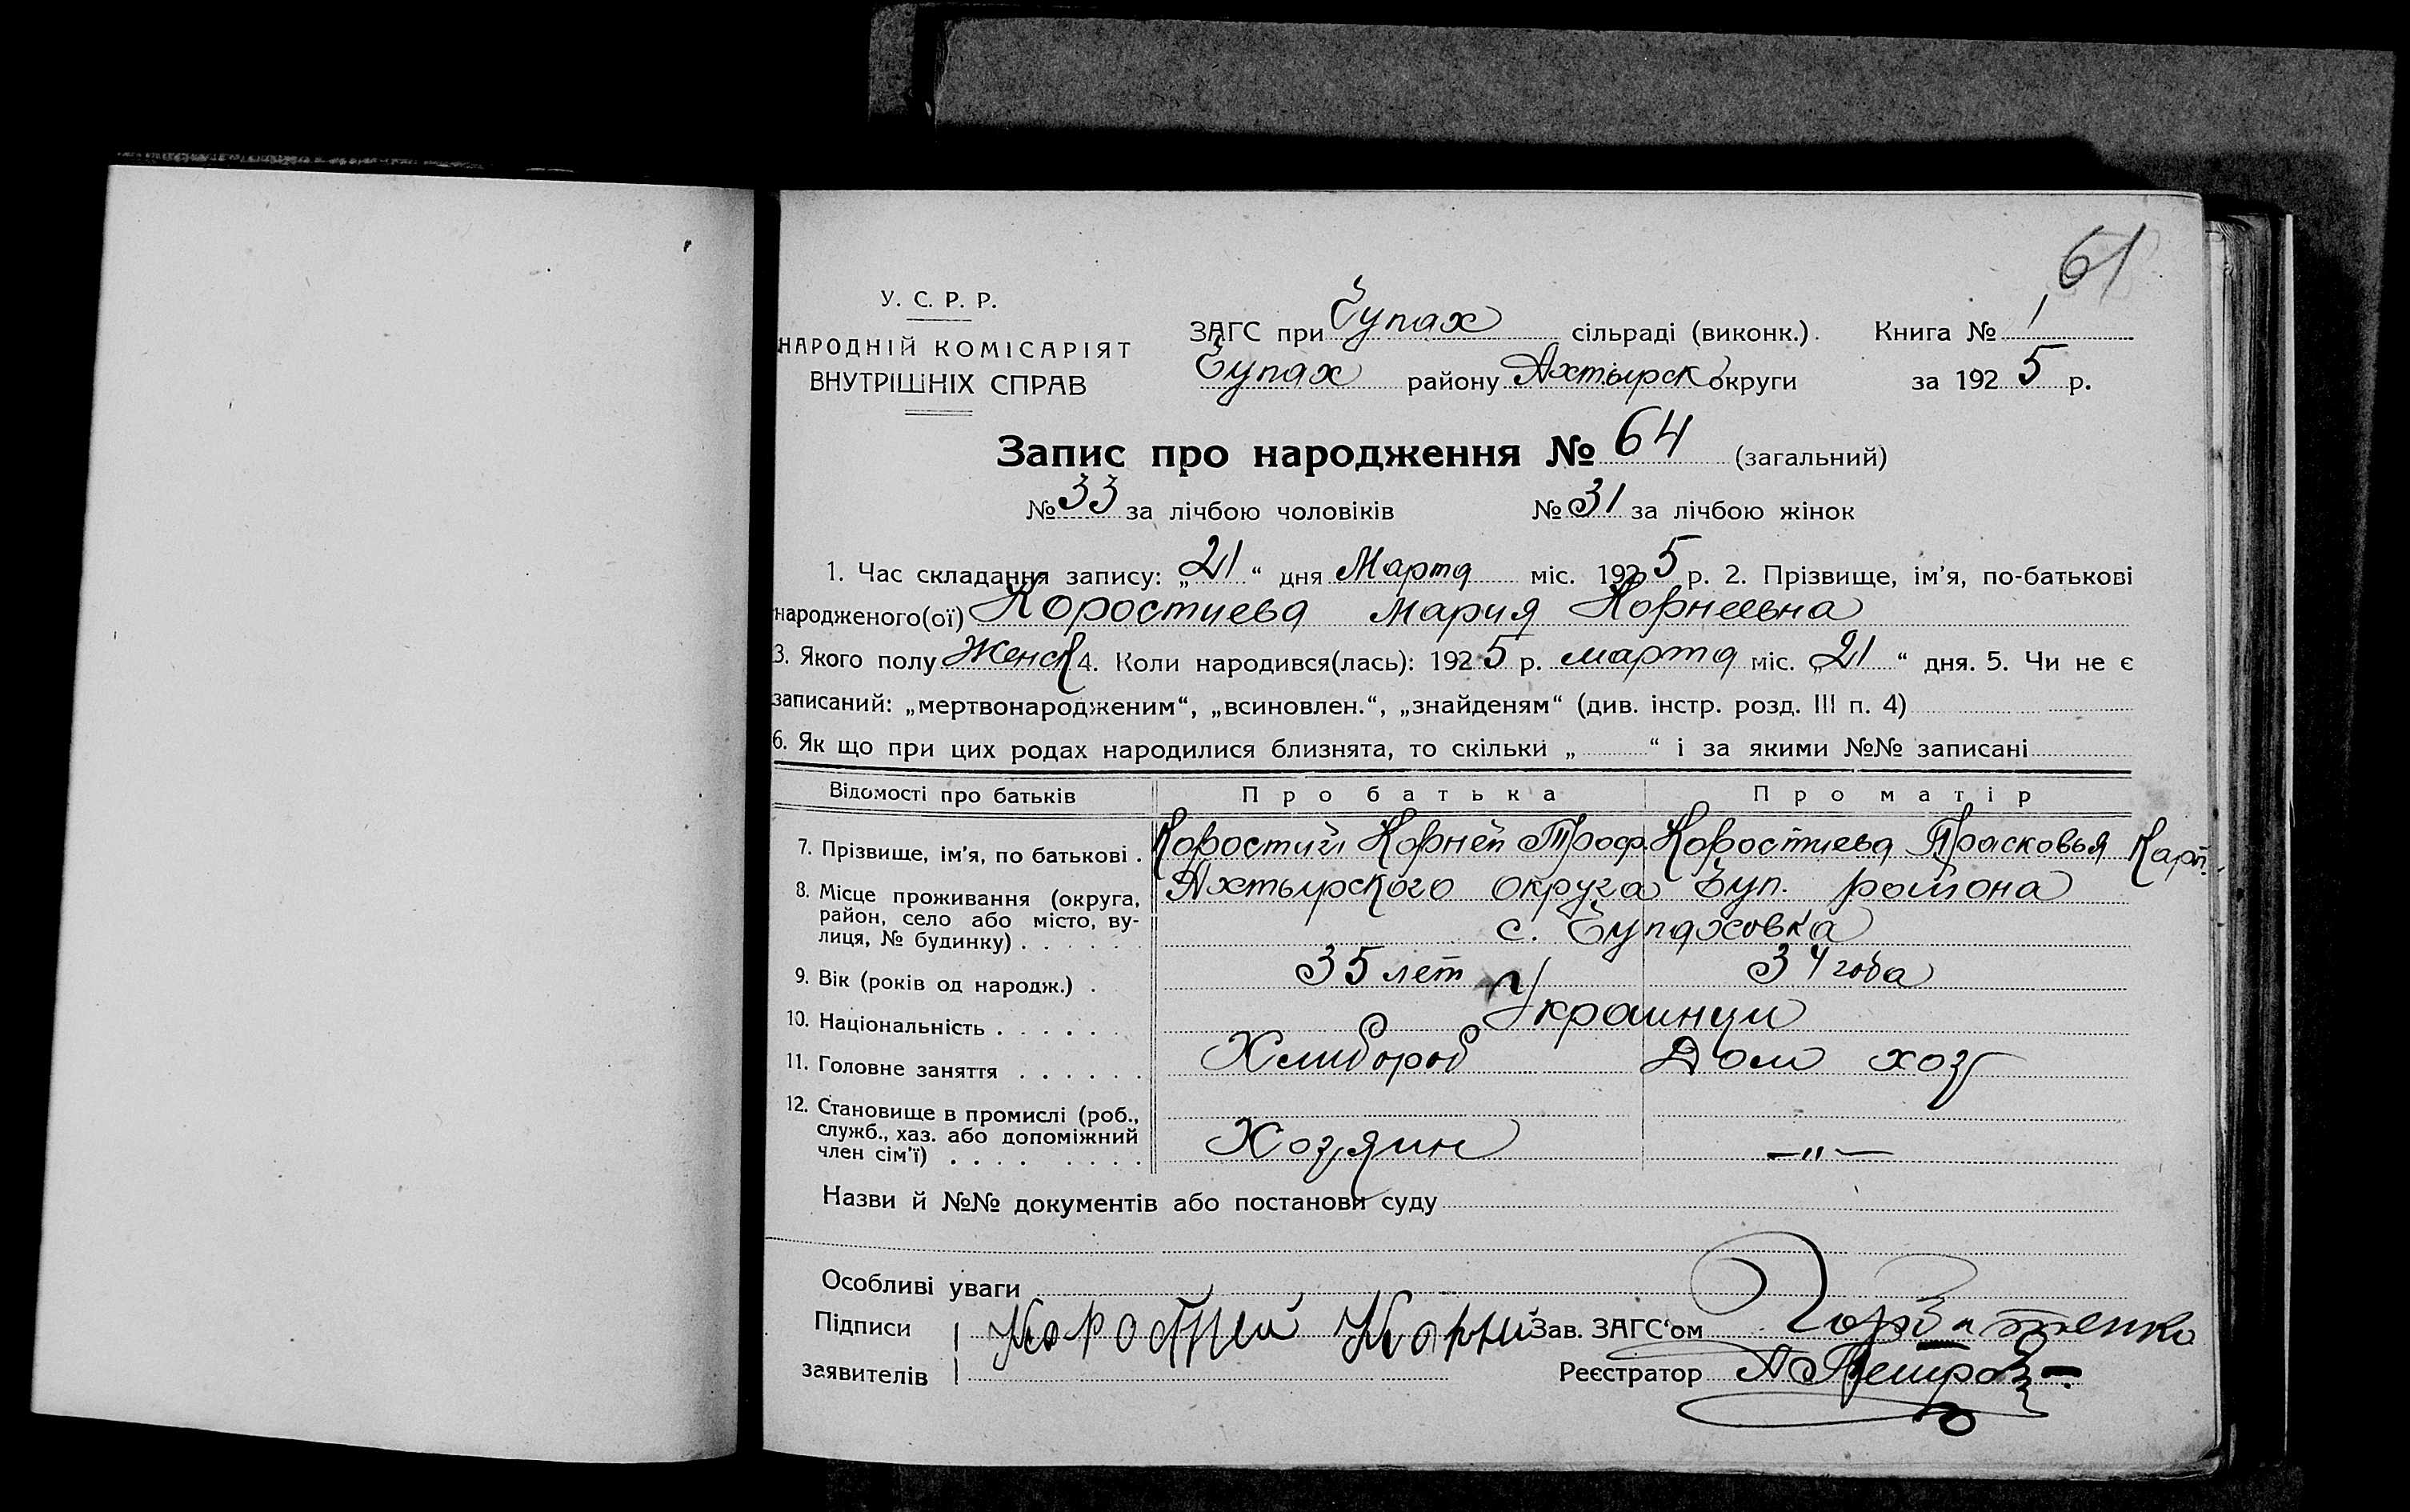 61
У. С. Р. Р.
НАРОДНІЙ КОМІСАРІЯТ
ВНУТРІШНІХ СПРАВ
ЗАГС при Чупах сільраді (виконк.). Книга № 1
Чупах району Ахтырск округи за 1925 р.
Запис про народження № 64 (загальний)
№ 33 за лічбою чоловіків № 31 за лічбою жінок
1. Час складання запису: „21“ дня Марта міс. 1925 р. 2. Прізвище, ім’я, по-батькові
народженого(ої) Коростиева Мария Корнеевна
3. Якого полу Женск 4. Коли народився(лась): 1925 р. марта міс. „21“ дня. 5. Чи не є
записаний: „мертвонародженим“, „всиновлен.“, „знайденям“ (див. інстр. розд. III п. 4)
6. Як що при цих родах народилися близнята, то скільки „ “ і за якими №№ записані
Відомості про батьків Про батька Про матір
7. Прізвище, ім’я, по батькові . Коростий Корней Троф. Коростиева Прасковья Карп.
8. Місце проживання (округа, Ахтырского округа Чуп. района
район, село або місто, ву-
лиця, № будинку) . . . . . . с. Чупаховка
9. Вік (років од народж.) . 35 лет 34 года
10. Національність . . . . . . Украинци
11. Головне заняття . . . . . . Хлибороб Дом хоз
12. Становище в промислі (роб.,
служб., хаз. або допоміжний
член сім’ї) . . . . . . . . Хозяин —"—
Назви й №№ документів або постанови суду
Особливі уваги
Підписи Коростий Корни Зав. ЗАГС‘ом
заявителів Реєстратор